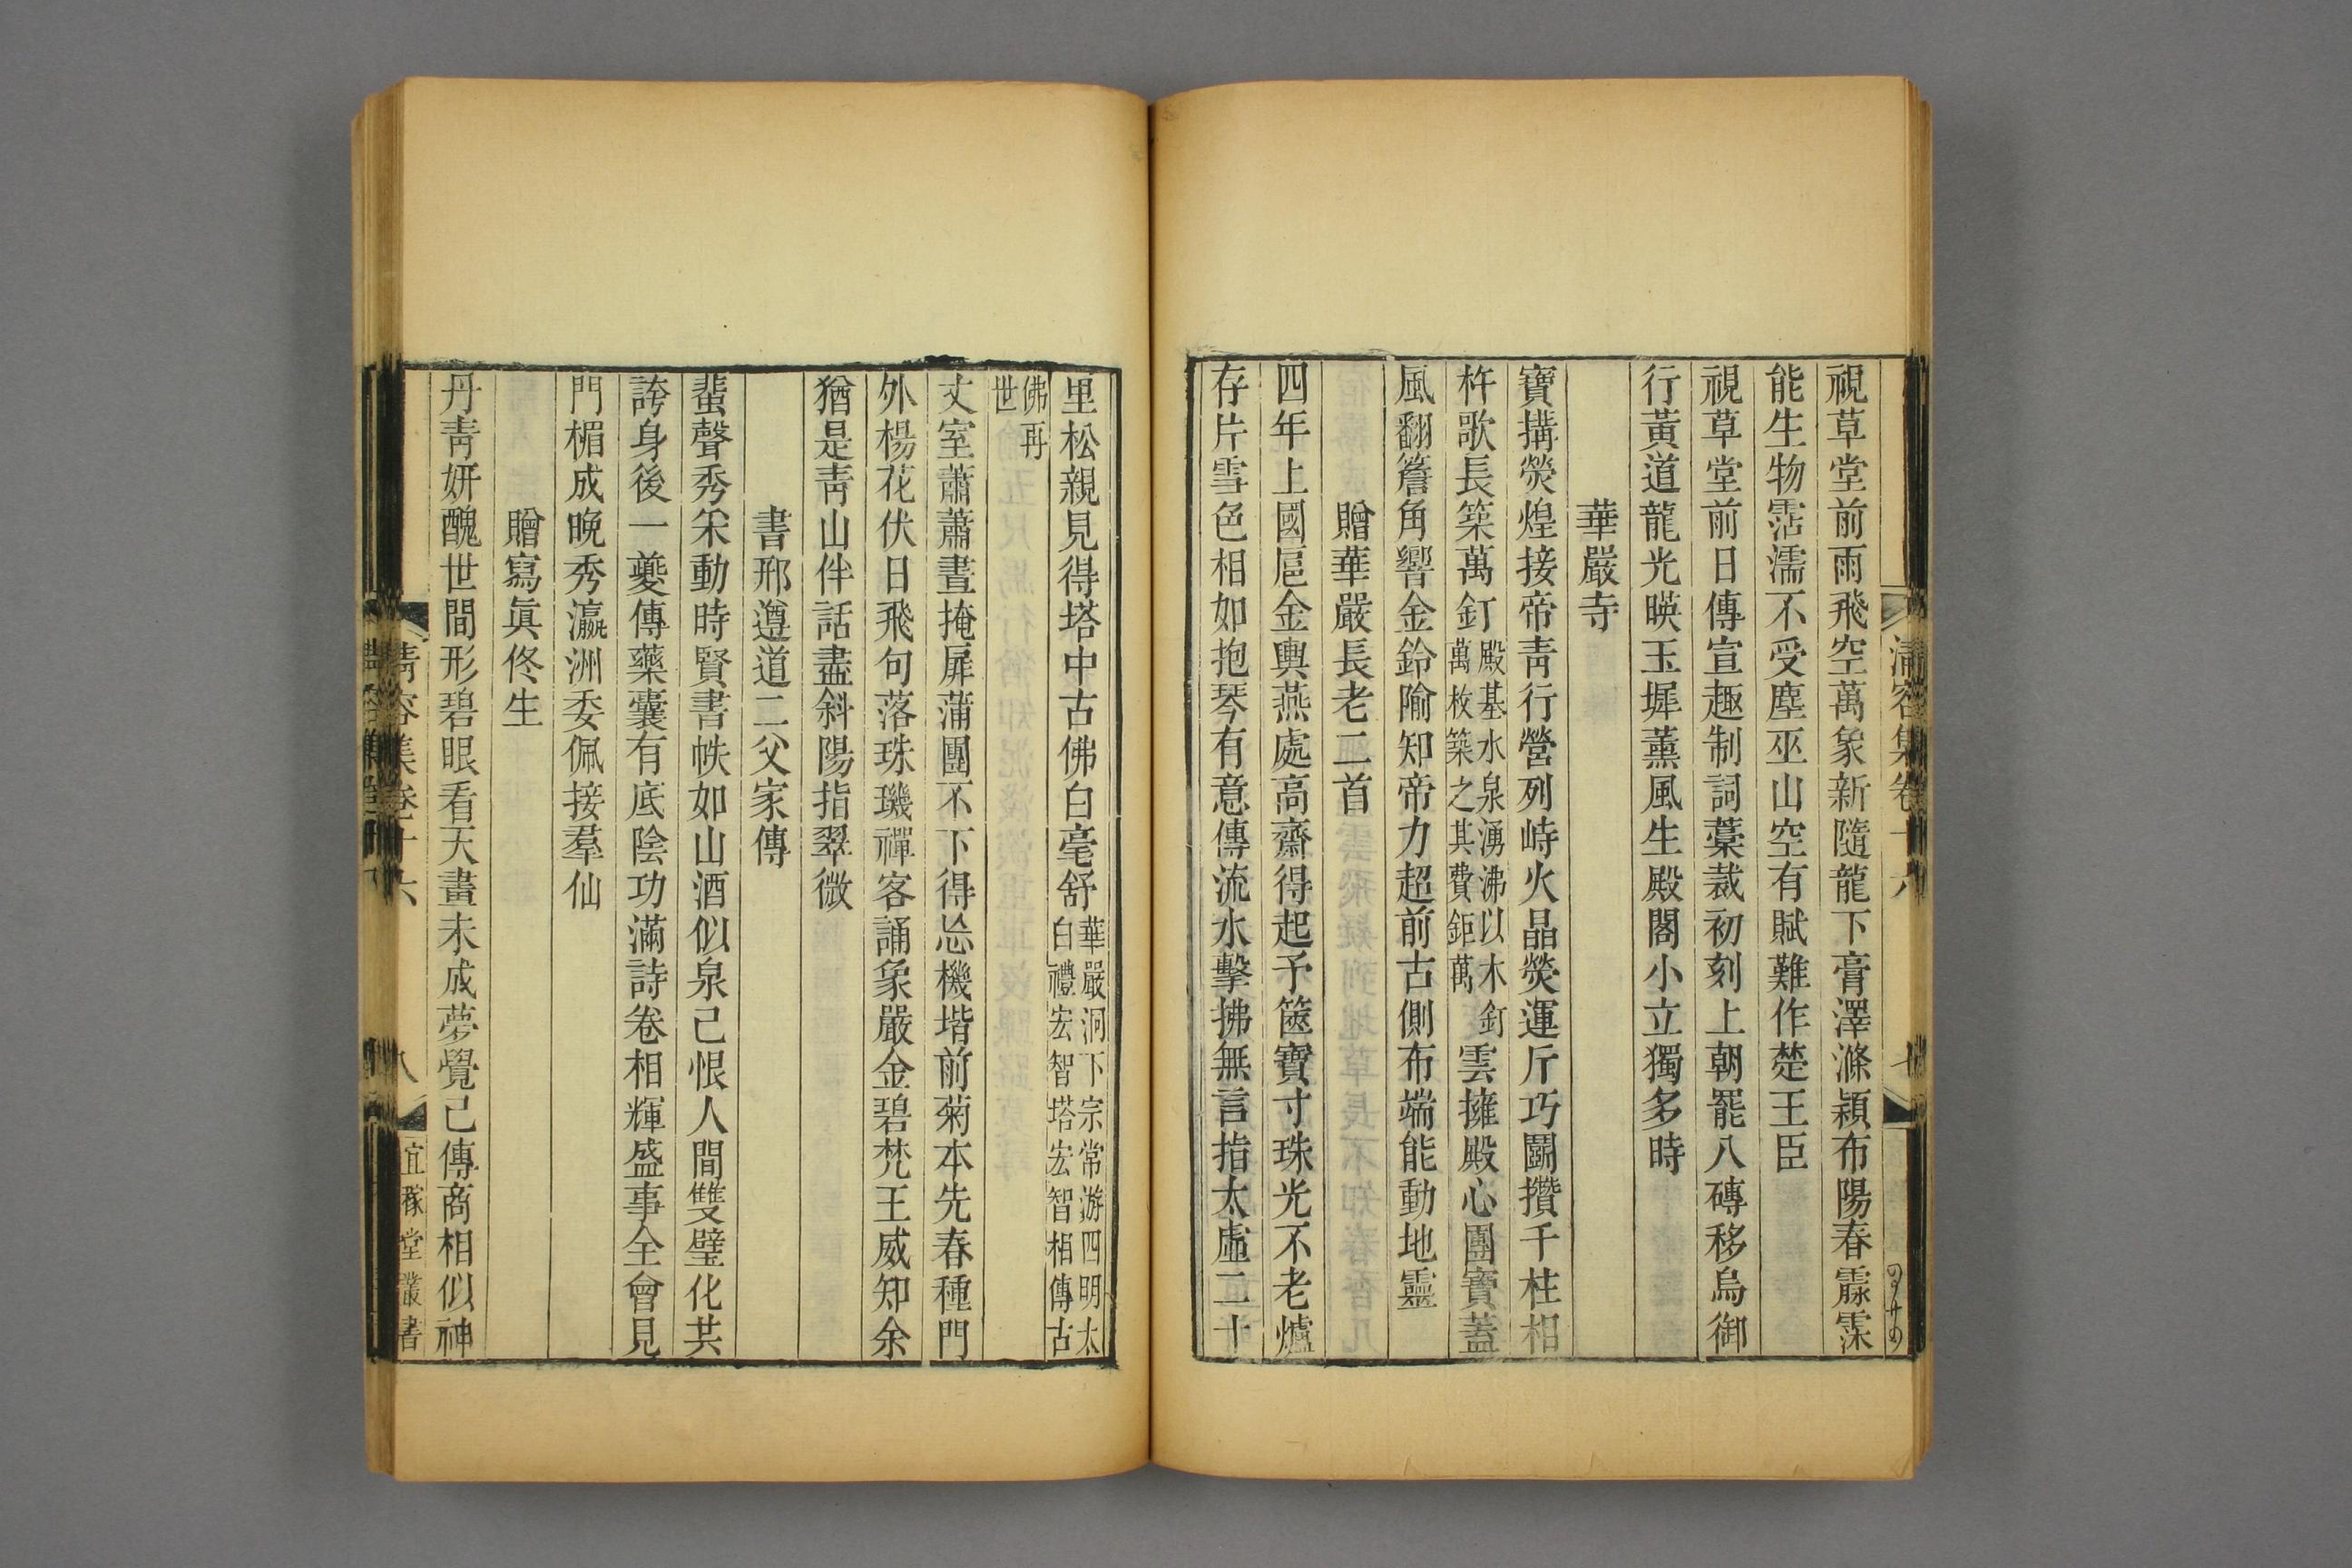 清容集卷十六
七
視草堂前雨飛空萬象新隨龍下膏澤滌潁布陽春霡霂
能生物霑濡不受塵巫山空有賦難作楚王臣
視草堂前日傳宣趣制詞藁裁初刻上朝罷八磚移烏御
行黃道龍光暎玉墀薰風生殿閣小立獨多時
華嚴寺
寶搆熒煌接帝靑行營列峙火晶熒運斤巧鬭攢千柱相
杵歌長築萬釘殿基水泉湧沸以木釘萬枚築之其費鉅萬雲擁殿心團寶蓋
風翻簷角響金鈴隃知帝力超前古側布端能動地靈
贈華嚴長老二首
四年上國扈金輿燕處高齋得起予篋寶寸珠光不老爐
存片雪色相如抱琴有意傳流水擊拂無言指太虛二十
里松親見得塔中古佛白毫舒華嚴洞下宗常游四明太白禮宏智塔宏智相傳古
佛再世
丈室蕭蕭晝掩扉蒲團不下得忘機堦前菊本先春種門
外楊花伏日飛句落珠璣禪客誦象嚴金碧梵王威知余
猶是靑山伴話盡斜陽指翠微
書邢遵道二父家傳
蜚聲秀朶動時賢書帙如山酒似泉己恨人間雙璧化共
誇身後一夔傳藥囊有底陰功滿詩卷相輝盛事全會見
門楣成晩秀瀛洲委佩接羣仙
贈寫眞佟生
丹靑妍醜世間形碧眼看天畫未成夢覺己傳商相似神
清容集卷十六
八
宜稼堂叢書